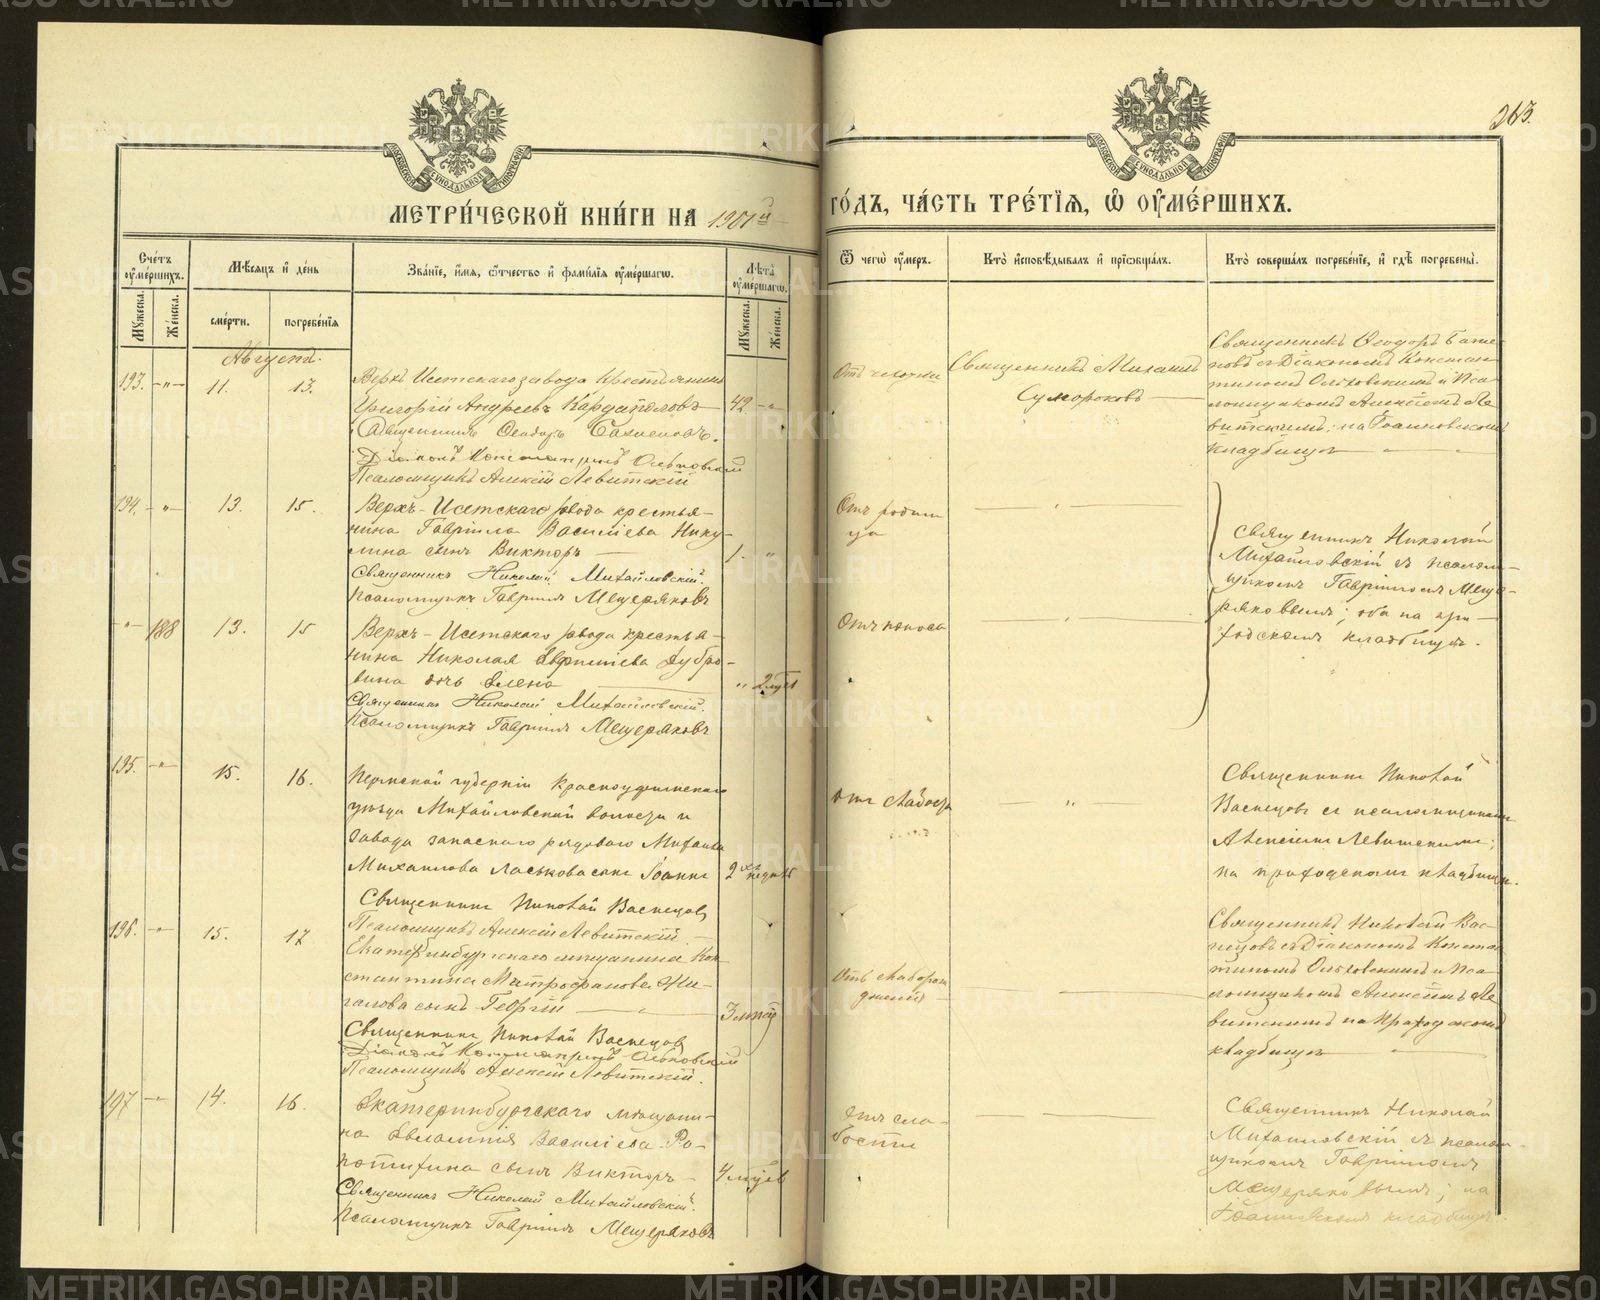 263.
МЕТРИ́ЧЕСКОЙ КНИ́ГИ НА 1901й
ГО́ДЪ, ЧА́СТЬ ТРЕ́ТІѦ, Ѡ ОУ҆МЕ́РШИХЪ.
Сче́тъ оу҆ме́ршихъ.
Мꙋ́жеска.
Же́нска.
Мѣ́сѧцъ и҆ де́нь
сме́рти.
погребе́нїѧ
Зва́нїе, и҆́мѧ, ѻ҆́тчество и҆ фами́лїѧ оу҆ме́ршагѡ.
Лѣ́та оу҆ме́ршагѡ.
Мꙋ́жеска.
Же́нска.
Ѿ чегѡ̀ оу҆́меръ.
Кто̀ и҆сповѣ́дывалъ и҆ прїѡбща́лъ.
Кто̀ соверша́лъ погребе́нїе, и҆ гдѣ̀ погребены̀.
Августъ.
193. -"- 11. 13.
Верхъ Исетскаго завода крестьянинъ
Григорій Андреевъ Кардаполовъ 42. -"-
Священникъ Феодоръ
Діаконъ Константинъ Ольховскій
Псаломщикъ Алексій Левитскій
Отъ чахотки
Священникъ Михаилъ
Сумороковъ
Священникъ Феодоръ
съ Діакономъ Констан
тиномъ Ольховскимъ и Пса
ломщикомъ Алексіемъ Ле
витскимъ; на Іоанновскомъ
кладбищѣ
194. -"- 13. 15.
Верхъ-Исетскаго завода крестья-
нина Гавріила Васильева Нику-
лина сынъ Викторъ 1. "
Священникъ Николай Михайловскій.
Псаломщикъ Гавріилъ Мещеряковъ
Отъ родим
ца
Священникъ Николай
Михайловскій съ псалом-
щикомъ Гавріиломъ Меще-
ряковымъ; оба на при-
ходскомъ кладбищѣ.
-"- 188 13. 15
Верхъ-Исетскаго завода крестья-
нина Николая Дубро-
вина дочь Елена " 2 мѣс
Священникъ Николай Михайловскій.
Псаломщикъ Гавріилъ Мещеряковъ
Отъ поноса
195. -"- 15. 16.
Пермской губерніи Красноуфимскаго
уѣзда Михайловской волости и
завода запаснаго рядоваго Михаила
Михаилова Ласькова сынъ Іоаннъ 2хъ недѣль
Священникъ Николай Васнецовъ
Псаломщикъ Алексій Левитскій
отъ слабости
Священникъ Николай
Васнецовъ съ псаломщикомъ
Алексіемъ Левитскимъ;
на приходскомъ кладбищѣ.
196. -"- 15. 17
Екатеринбургскаго мѣщанина Кон
стантина Митрофанова Жи-
галова сынъ Георгій 3 мѣс
Священникъ Николай Васнецовъ
Діаконъ Константинъ Ольховскій
Псаломщикъ Алексій Левитскій.
Отъ слаборож
денія
Священникъ Николай Вас-
нецовъ съ Діакономъ Констан
тиномъ Ольховскимъ и Пса
ломщикомъ Алексіемъ Ле
витскимъ на Приходскомъ
кладбищѣ
197 -"- 14. 16.
Екатеринбургскаго мѣщани-
на Евлампія Васильева Ро-
сынъ Викторъ 4 мѣс
Священникъ Николай Михайловскій.
Псаломщикъ Гавріилъ Мещеряковъ
Отъ сла-
бости
Священникъ Николай
Михайловскій съ псалом-
щикомъ Гавріиломъ
Мещеряковымъ; на
Іоанновскомъ кладбищѣ.
METRIKI.GASO-URAL.RU